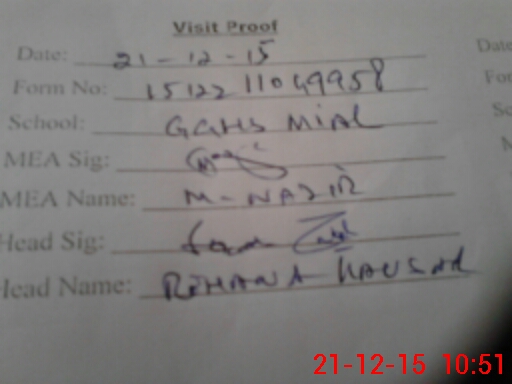 Visit Proof
Date: 21-12-15
Date
Form No: 15122 11049958
For
School: GGHS MIAL
Sc
MEA Sig:
MEA Name: M-NAZIR
Head Sig:
Head Name: REHANA KAUSAR
21-12-15 10:51